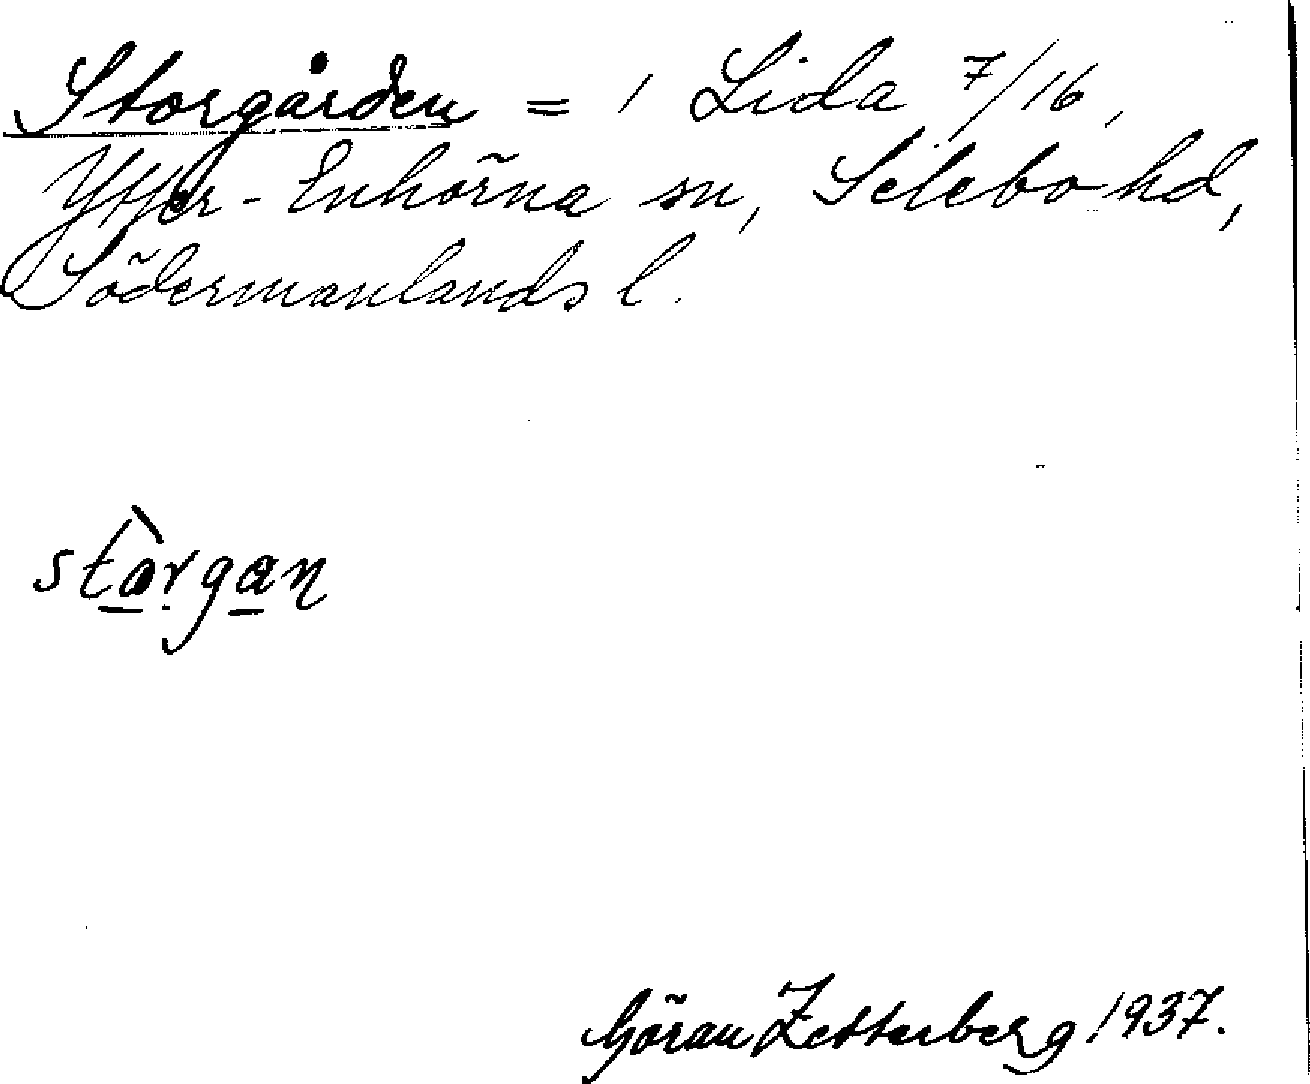 Storgården = 1 Lida 7/16,
Ytter-Enhörna sn, Selebo hd,
Södermanlands l.
stàrgan
Göran Zetterberg 1937.